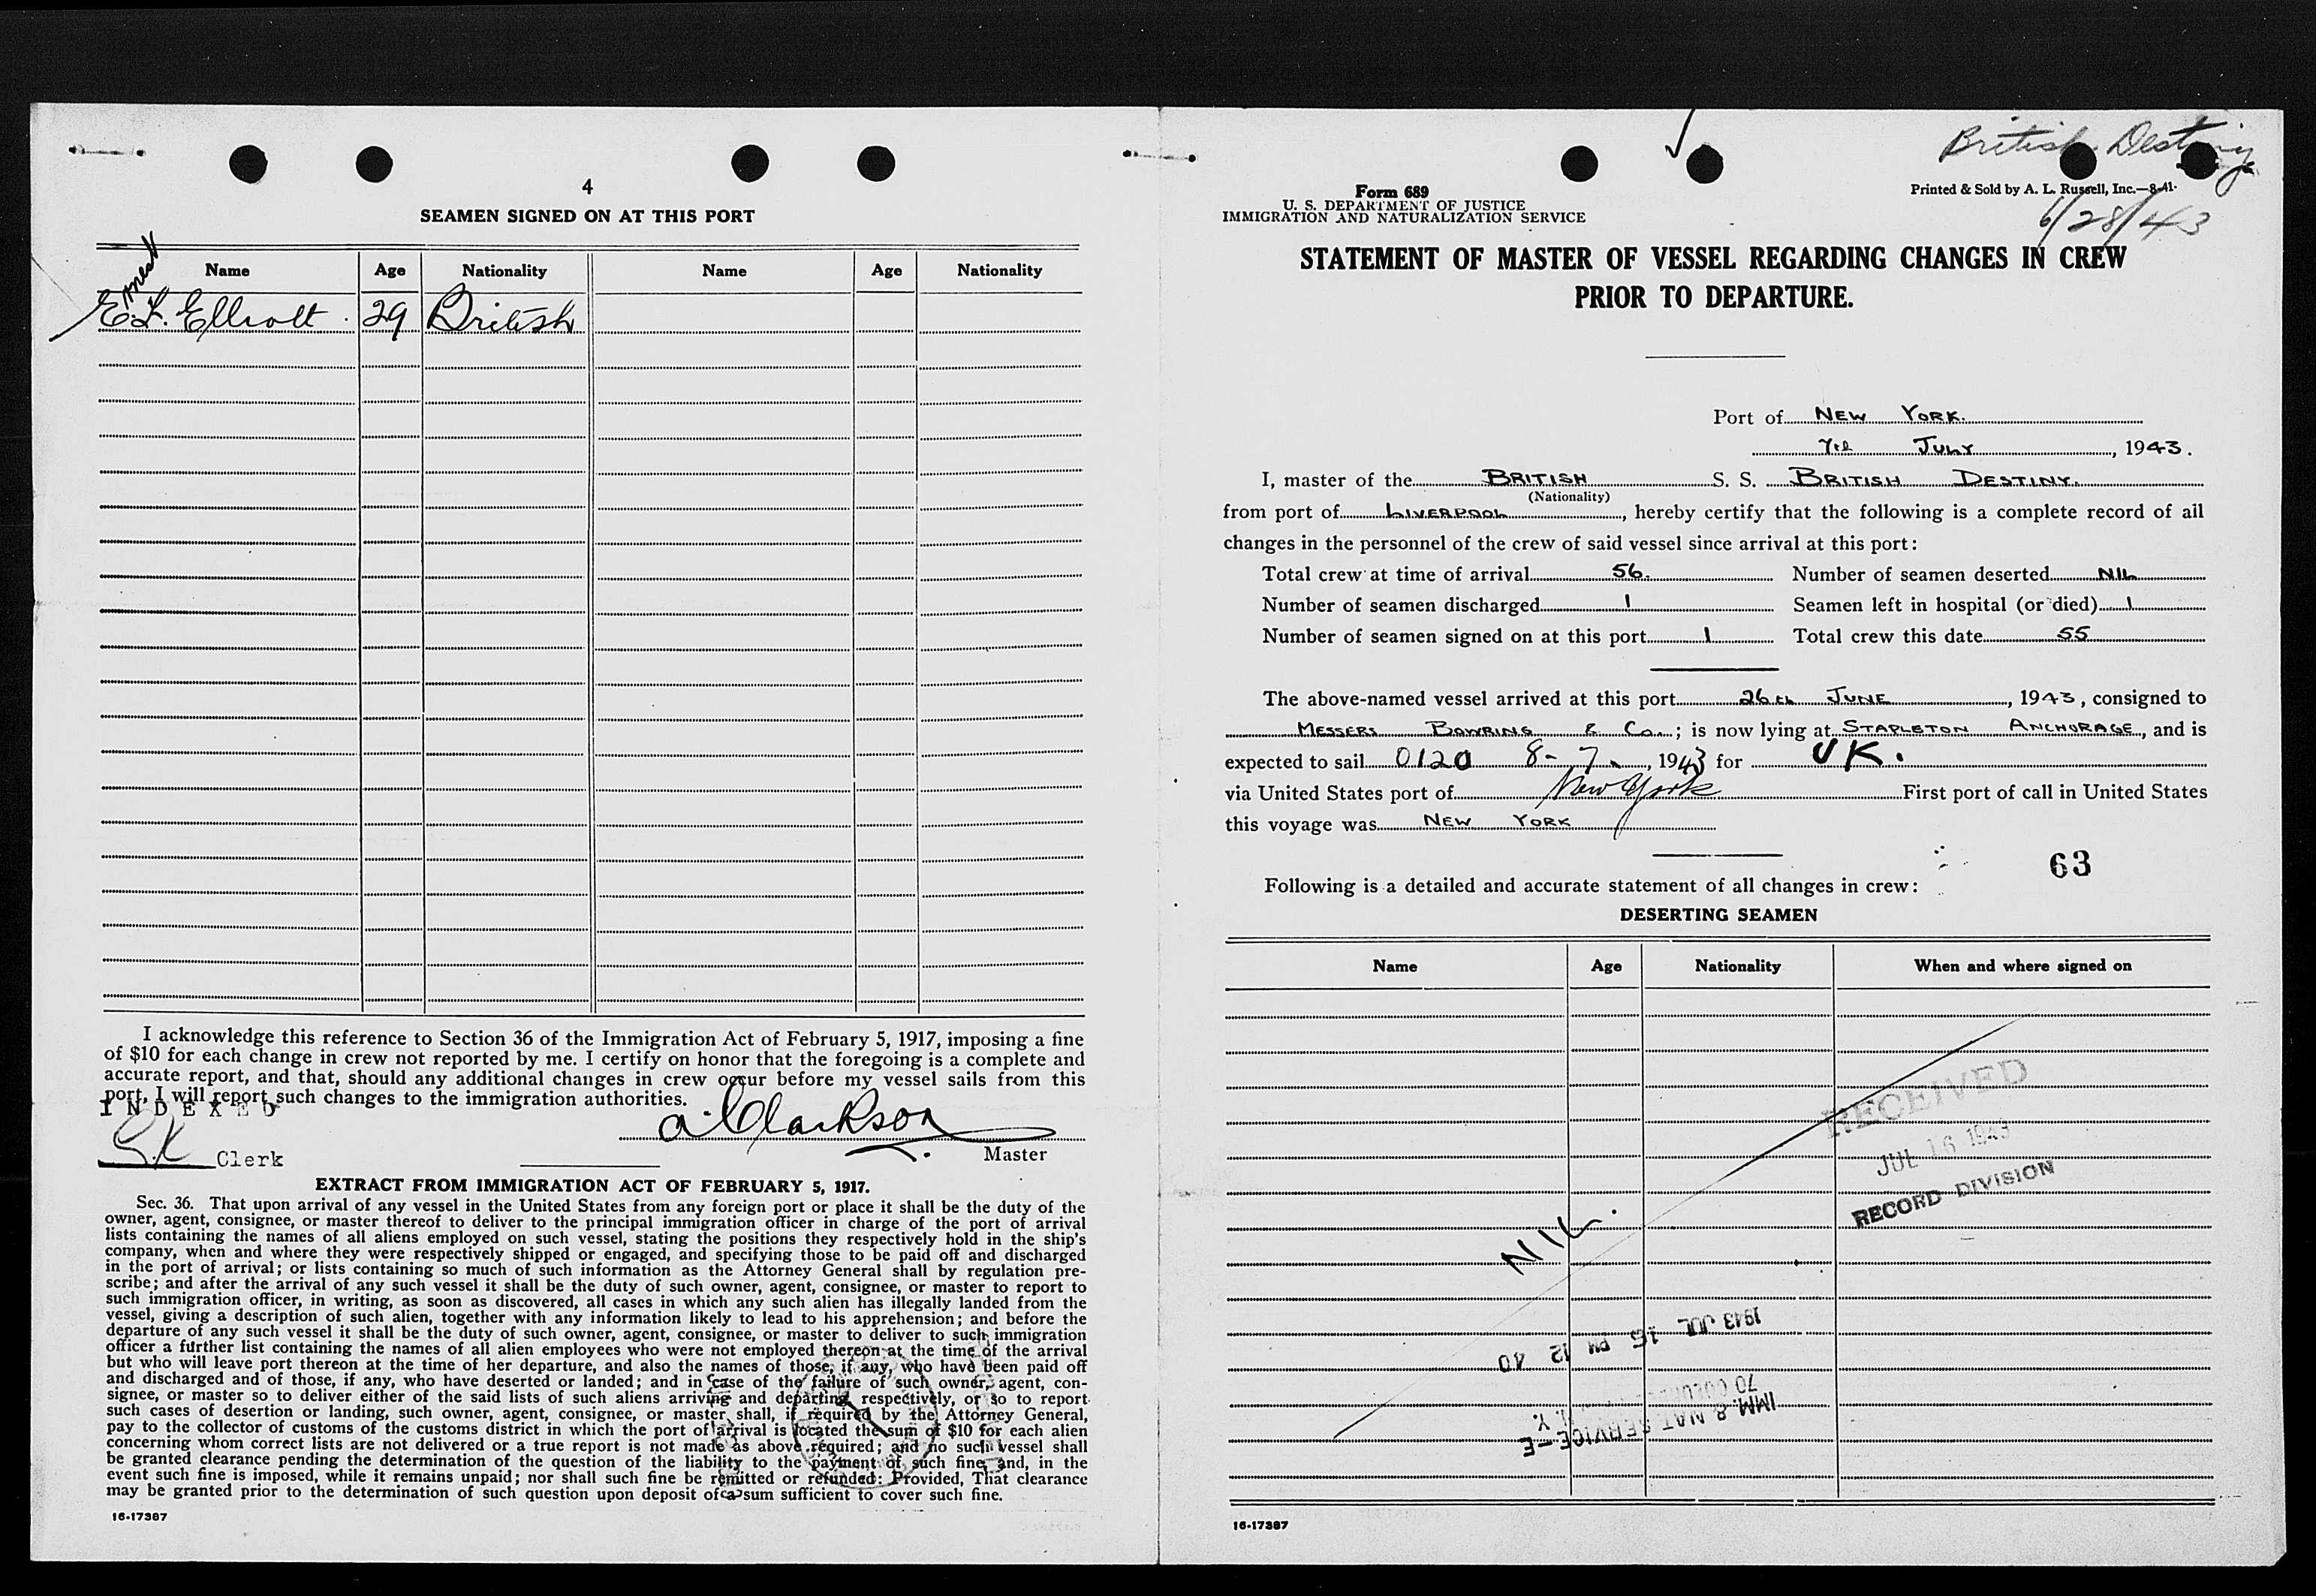 4
SEAMEN SIGNED ON AT THIS PORT
Name Age Nationality Name Age Nationality
Ernest
E. L. Elliott 29 British
I acknowledge this reference to Section 36 of the Immigration Act of February 5, 1917, imposing a fine
of $10 for each change in crew not reported by me. I certify on honor that the foregoing is a complete and
accurate report, and that, should any additional changes in crew occur before my vessel sails from this
port, I will report such changes to the immigration authorities.
INDEXED
A. Clarkson
Clerk
Master
EXTRACT FROM IMMIGRATION ACT OF FEBRUARY 5, 1917.
Sec. 36. That upon arrival of any vessel in the United States from any foreign port or place it shall be the duty of the
owner, agent, consignee, or master thereof to deliver to the principal immigration officer in charge of the port of arrival
lists containing the names of all aliens employed on such vessel, stating the positions they respectively hold in the ship's
company, when and where they were respectively shipped or engaged, and specifying those to be paid off and discharged
in the port of arrival; or lists containing so much of such information as the Attorney General shall by regulation pre-
scribe; and after the arrival of any such vessel it shall be the duty of such owner, agent, consignee, or master to report to
such immigration officer, in writing, as soon as discovered, all cases in which any such alien has illegally landed from the
vessel, giving a description of such alien, together with any information likely to lead to his apprehension; and before the
departure of any such vessel it shall be the duty of such owner, agent, consignee, or master to deliver to such immigration
officer a further list containing the names of all alien employees who were not employed thereon at the time of the arrival
but who will leave port thereon at the time of her departure, and also the names of those, if any, who have been paid off
and discharged and of those, if any, who have deserted or landed; and in case of the failure of such owner, agent, con-
signee, or master so to deliver either of the said lists of such aliens arriving and departing respectively, or so to report
such cases of desertion or landing, such owner, agent, consignee, or master shall, if required by the Attorney General,
pay to the collector of customs of the customs district in which the port of arrival is located the sum of $10 for each alien
concerning whom correct lists are not delivered or a true report is not made as above required; and no such vessel shall
be granted clearance pending the determination of the question of the liability to the payment of such fine, and, in the
event such fine is imposed, while it remains unpaid; nor shall such fine be remitted or refunded: Provided, That clearance
may be granted prior to the determination of such question upon deposit of a sum sufficient to cover such fine.
16-17387
British Destiny
Form 689
U. S. DEPARTMENT OF JUSTICE
IMMIGRATION AND NATURALIZATION SERVICE
Printed & Sold by A. L. Russell, Inc.—8-41
6/28/43
STATEMENT OF MASTER OF VESSEL REGARDING CHANGES IN CREW
PRIOR TO DEPARTURE.
Port of NEW YORK.
7th JULY, 1943.
I, master of the BRITISH S. S. BRITISH DESTINY.
(Nationality)
from port of LIVERPOOL, hereby certify that the following is a complete record of all
changes in the personnel of the crew of said vessel since arrival at this port:
Total crew at time of arrival 56. Number of seamen deserted NIL
Number of seamen discharged 1 Seamen left in hospital (or died) 1
Number of seamen signed on at this port 1 Total crew this date 55
The above-named vessel arrived at this port 26th JUNE, 1943, consigned to
MESSERS BOWRING & Co.; is now lying at STAPLETON ANCHORAGE, and is
expected to sail 0120 8-7-, 1943 for UK.
via United States port of New York First port of call in United States
this voyage was NEW YORK
63
Following is a detailed and accurate statement of all changes in crew:
DESERTING SEAMEN
Name Age Nationality When and where signed on
RECEIVED
JUL 16 1943
RECORD DIVISION
NIL.
1943 JUL 15 PM 12 40
IMM. & NAT. SERVICE-E
16-17387